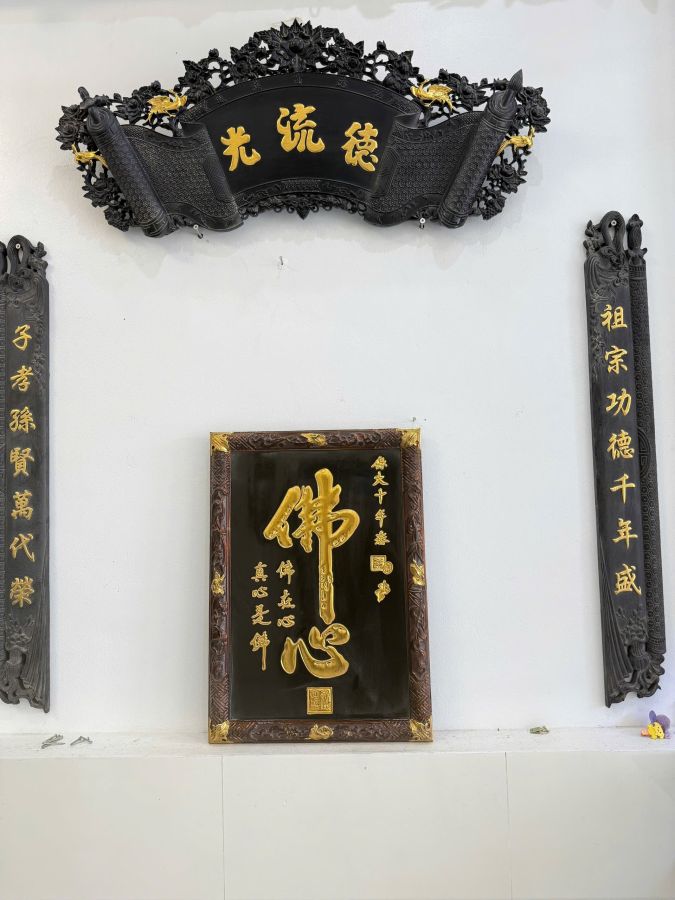 德流光
祖宗功德千年盛
保大十年春
佛心
佛在心
真心是佛
子孝孫賢萬代榮